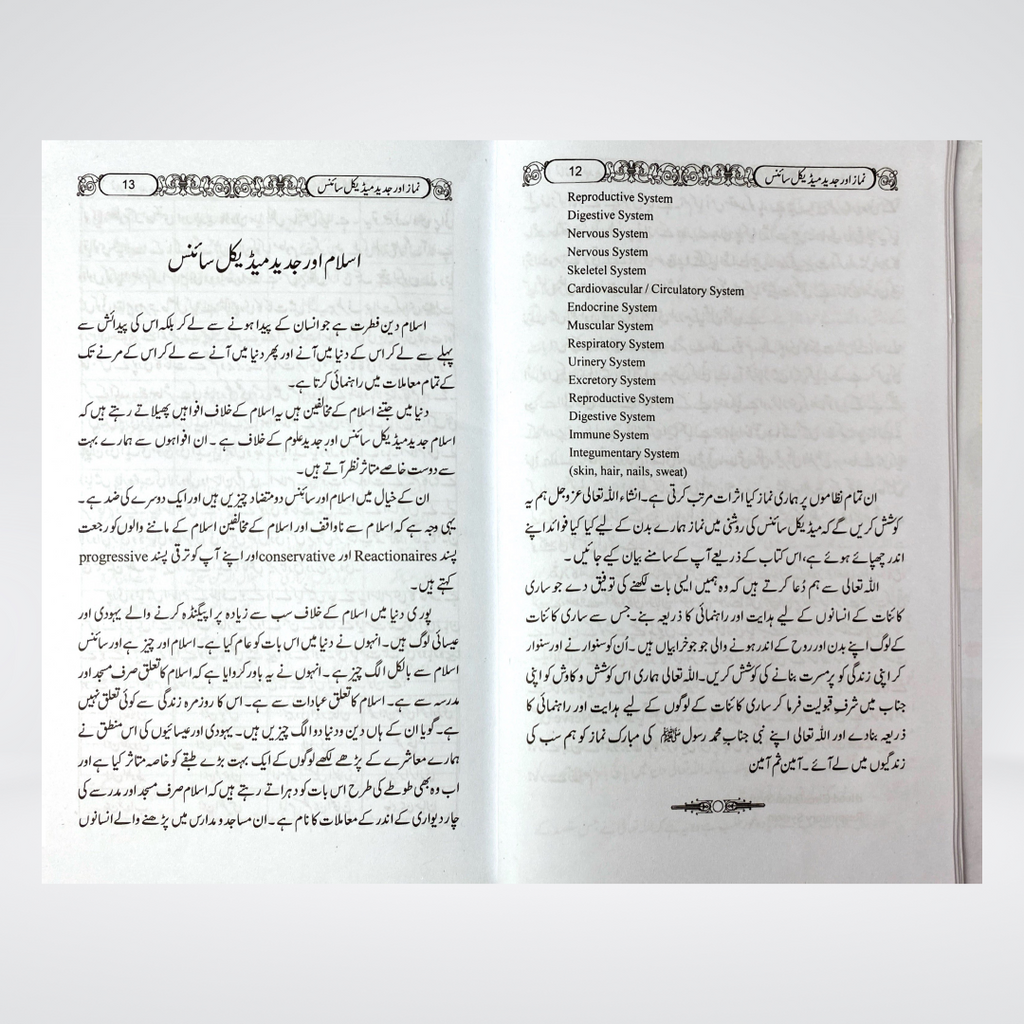 12
نماز اور جدید میڈیکل سائنس
Reproductive System
Digestive System
Nervous System
Nervous System
Skeletel System
Cardiovascular / Circulatory System
Endocrine System
Muscular System
Respiratory System
Urinery System
Excretory System
Reproductive System
Digestive System
Immune System
Integumentary System
(skin, hair, nails, sweat)
ان تمام نظاموں پر ہماری نماز کیا اثرات مرتب کرتی ہے۔ انشاء اللہ تعالی عزوجل ہم یہ
کوشش کریں گے کہ میڈیکل سائنس کی روشنی میں نماز ہمارے بدن کے لیے کیا کیا فوائد اپنے
اندر چھپائے ہوئے ہے، اس کتاب کے ذریعے آپ کے سامنے بیان کیے جائیں۔
اللہ تعالی سے ہم دُعا کرتے ہیں کہ وہ ہمیں ایسی بات لکھنے کی توفیق دے جو ساری
کائنات کے انسانوں کے لیے ہدایت اور راہنمائی کا ذریعہ بنے۔ جس سے ساری کائنات
کے لوگ اپنے بدن اور روح کے اندر ہونے والی جو جو خرابیاں ہیں۔ اُن کو سنوارنے اور سنوار
کر اپنی زندگی کو پرمسرت بنانے کی کوشش کریں۔ اللہ تعالی ہماری اس کوشش و کاوش کو اپنی
جناب میں شرفِ قبولیت فرما کر ساری کائنات کے لوگوں کے لیے ہدایت اور راہنمائی کا
ذریعہ بنا دے اور اللہ تعالی اپنے نبی جناب محمد رسول ﷺ کی مبارک نماز کو ہم سب کی
زندگیوں میں لے آئے۔ آمین ثم آمین
13
نماز اور جدید میڈیکل سائنس
اسلام اور جدید میڈیکل سائنس
اسلام دین فطرت ہے جو انسان کے پیدا ہونے سے لے کر بلکہ اس کی پیدائش سے
پہلے سے لے کر اس کے دنیا میں آنے اور پھر دنیا میں آنے سے لے کر اس کے مرنے تک
کے تمام معاملات میں راہنمائی کرتا ہے۔
دنیا میں جتنے اسلام کے مخالفین ہیں یہ اسلام کے خلاف افواہیں پھیلاتے رہتے ہیں کہ
اسلام جدید میڈیکل سائنس اور جدید علوم کے خلاف ہے۔ ان افواہوں سے ہمارے بہت
سے دوست خاصے متاثر نظر آتے ہیں۔
ان کے خیال میں اسلام اور سائنس دو متضاد چیزیں ہیں اور ایک دوسرے کی ضد ہے۔
یہی وجہ ہے کہ اسلام سے ناواقف اور اسلام کے مخالفین اسلام کے ماننے والوں کو رجعت
پسند Reactionaires اور conservative اور اپنے آپ کو ترقی پسند progressive
کہتے ہیں۔
پوری دنیا میں اسلام کے خلاف سب سے زیادہ پراپیگنڈہ کرنے والے یہودی اور
عیسائی لوگ ہیں۔ انہوں نے دنیا میں اس بات کو عام کیا ہے۔ اسلام اور چیز ہے اور سائنس
اسلام سے بالکل الگ چیز ہے۔ انہوں نے یہ باور کروایا ہے کہ اسلام کا تعلق صرف مسجد اور
مدرسہ سے ہے۔ اسلام کا تعلق عبادات سے ہے۔ اس کا روزمرہ زندگی سے کوئی تعلق نہیں
ہے۔ گویا ان کے ہاں دین و دنیا دو الگ چیزیں ہیں۔ یہودی اور عیسائیوں کی اس منطق نے
ہمارے معاشرے کے پڑھے لکھے لوگوں کے ایک بہت بڑے طبقے کو خاصہ متاثر کیا ہے اور
اب وہ بھی طوطے کی طرح اس بات کو دہراتے رہتے ہیں کہ اسلام صرف مسجد اور مدرسے کی
چار دیواری کے اندر کے معاملات کا نام ہے۔ ان مساجد و مدارس میں پڑھنے والے انسانوں